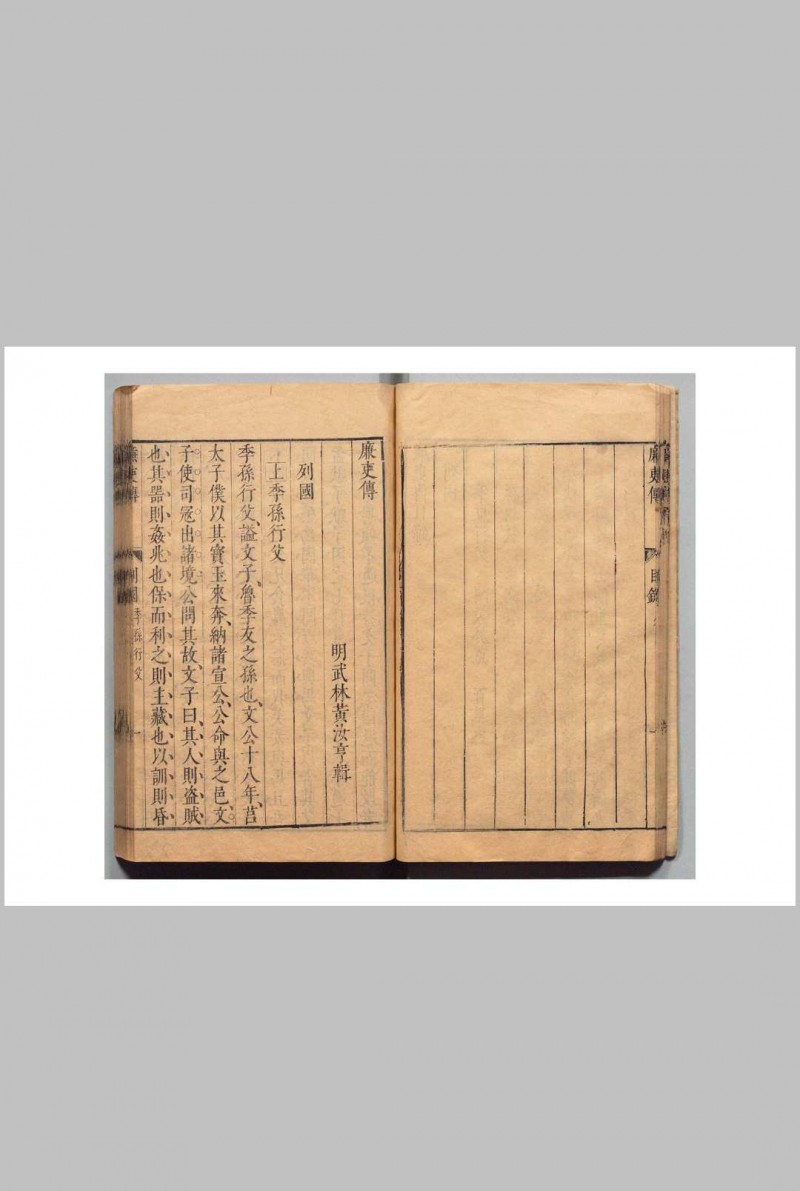 廉吏傳
目錄
廉吏傳
明武林黃汝亨輯
列國
上季孫行父
季孫行父謚文子魯季友之孫也文公十八年莒
太子僕以其寶玉來奔納諸宣公公命與之邑文
子使司冦出諸境公問其故文子曰其人則盜賊
也其噐則姦兆也保而利之則主藏也以訓則昏
廉吏傳
列國 季孫行父
一